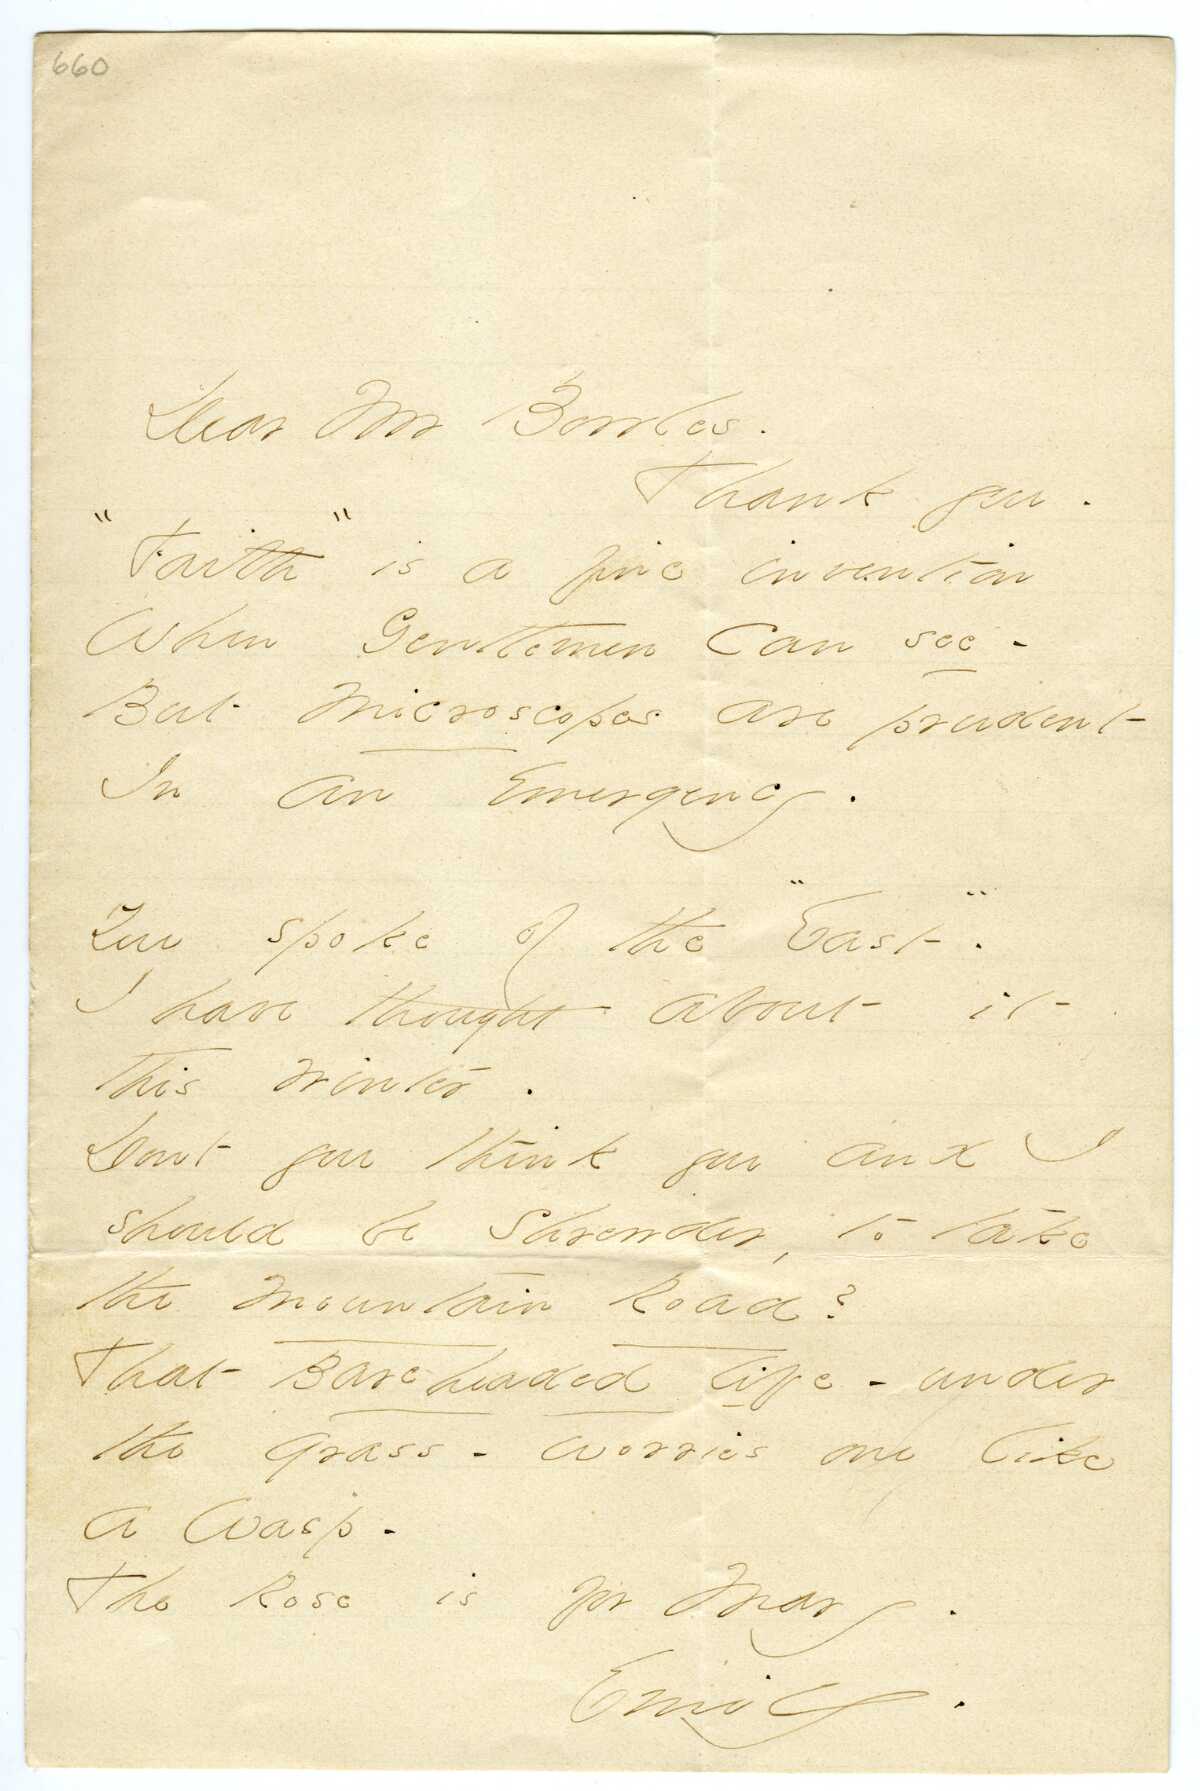 660
Dear Mr Bowles.
Thank you.
"Faith" is a fine invention
When Gentlemen can see -
But Microscopes are prudent
In an Emergency.
You spoke of the "East".
I have thought about it
this winter.
Dont you think you and I
should be Shrewder, to take
the Mountain Road?
That Bareheaded life - under
the Grass - worries one like
a Wasp -
The Rose is for Mary.
Emily.